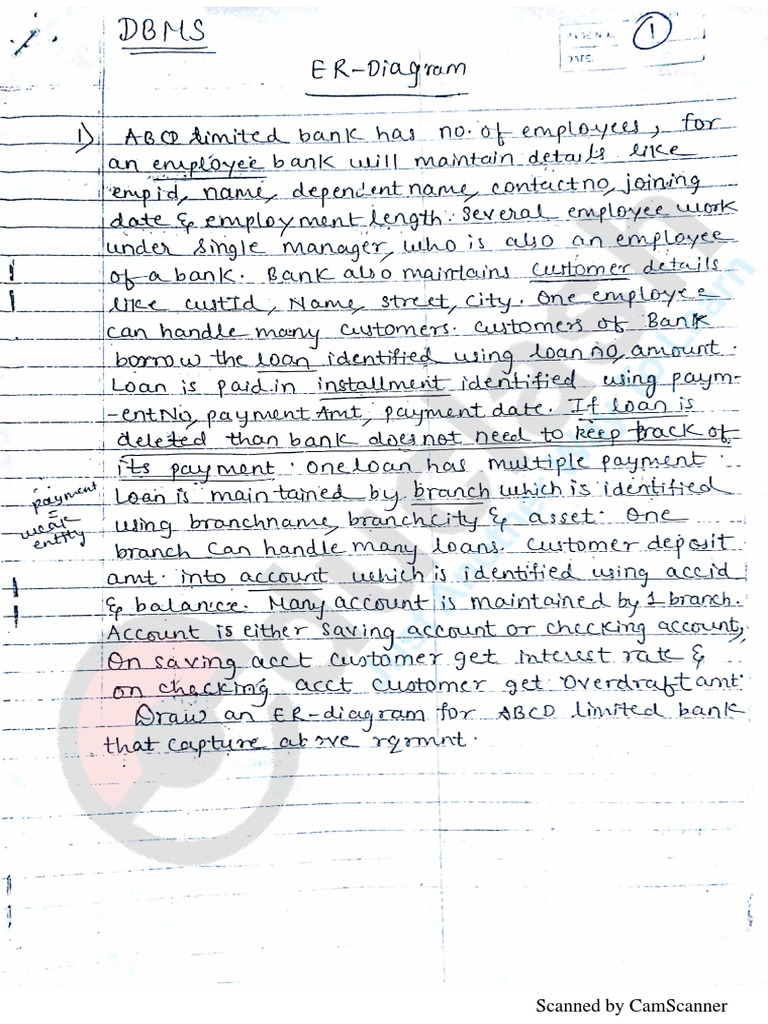 DBMS
1
PAGE No.
DATE
ER-Diagram
1) ABCD limited bank has no. of employees, for
an employee bank will maintain details like
empid, name, dependent name, contact no, joining
date & employment length. Several employee work
under single manager, who is also an employee
of a bank. Bank also maintains customer details
like custId, Name, street, city. One employee
can handle many customers. Customers of Bank
borrow the loan identified using loan no, amount.
Loan is paid in installment identified using paym-
-entNo, payment Amt, payment date. If loan is
deleted than bank does not need to keep track of
its payment. One loan has multiple payment.
Loan is maintained by branch which is identified
using branchname, branchcity & asset. One
branch can handle many loans. Customer deposit
amt. into account which is identified using accid
& balance. Many account is maintained by 1 branch.
Account is either saving account or checking account,
On saving acct customer get interest rate &
on checking acct customer get overdraft amt.
Draw an ER-diagram for ABCD limited bank
that capture above rqrmnt.
payment
=
weak
entity
Educlash
Just Another Way To Learn
Scanned by CamScanner